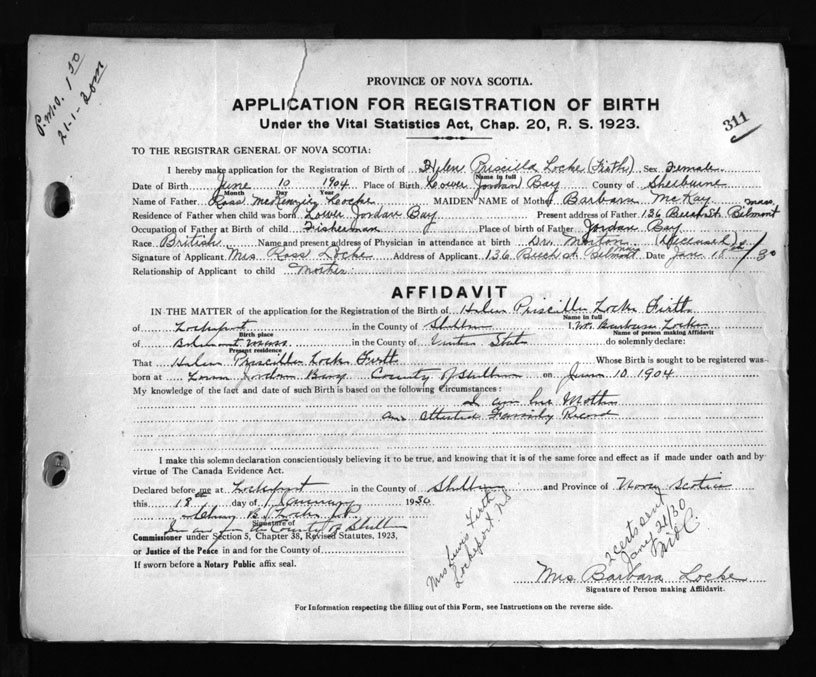 P.M.O. 1 50
21-1-
311
PROVINCE OF NOVA SCOTIA.
APPLICATION FOR REGISTRATION OF BIRTH
Under the Vital Statistics Act, Chap. 20, R. S. 1923.
TO THE REGISTRAR GENERAL OF NOVA SCOTIA:
I hereby make application for the Registration of Birth of Helen Priscilla Locke (Firth) Sex Female
Name in full
Date of Birth June 10 1904 Place of Birth Lower Jordan Bay County of Shelburne
Month Day Year
Name of Father Ross McKenzie Locke MAIDEN NAME of Mother Barbara McKay
Residence of Father when child was born Lower Jordan Bay Present address of Father 136 Beech St. Belmont Mass.
Occupation of Father at Birth of child Fisherman Place of birth of Father Jordan Bay
Race British Name and present address of Physician in attendance at birth Dr. Morton (Deceased)
Signature of Applicant Mrs Ross Locke Address of Applicant 136 Beech St Belmont Mass Date Jan. 18th/30
Relationship of Applicant to child Mother
AFFIDAVIT
IN THE MATTER of the application for the Registration of Birth of Helen Priscilla Locke Firth
Name in full
of Lockeport in the County of Shelburne I, Barbara Locke
Birth place Name of person making Affidavit
of Belmont Mass in the County of United States do solemnly declare:
Present residence
That Helen Priscilla Locke Firth Whose Birth is sought to be registered was
born at Lower Jordan Bay County of Shelburne on June 10 1904
My knowledge of the fact and date of such Birth is based on the following Circumstances:
I am her Mother
an attested Family Record
I make this solemn declaration conscientiously believing it to be true, and knowing that it is of the same force and effect as if made under oath and by
virtue of The Canada Evidence Act.
Declared before me at Lockeport in the County of Shelburne and Province of Nova Scotia
this 18th day of January 1930
Locke J.P.
Signature of
In and for the County of Shelb
Commissioner under Section 5, Chapter 38, Revised Statutes, 1923,
or Justice of the Peace in and for the County of
If sworn before a Notary Public affix seal.
Mrs Lewis Firth
Lockeport N.S
2 certs sent
Jany 21/30
Mrs Barbara Locke
Signature of Person making Affidavit.
For Information respecting the filling out of this Form, see Instructions on the reverse side.